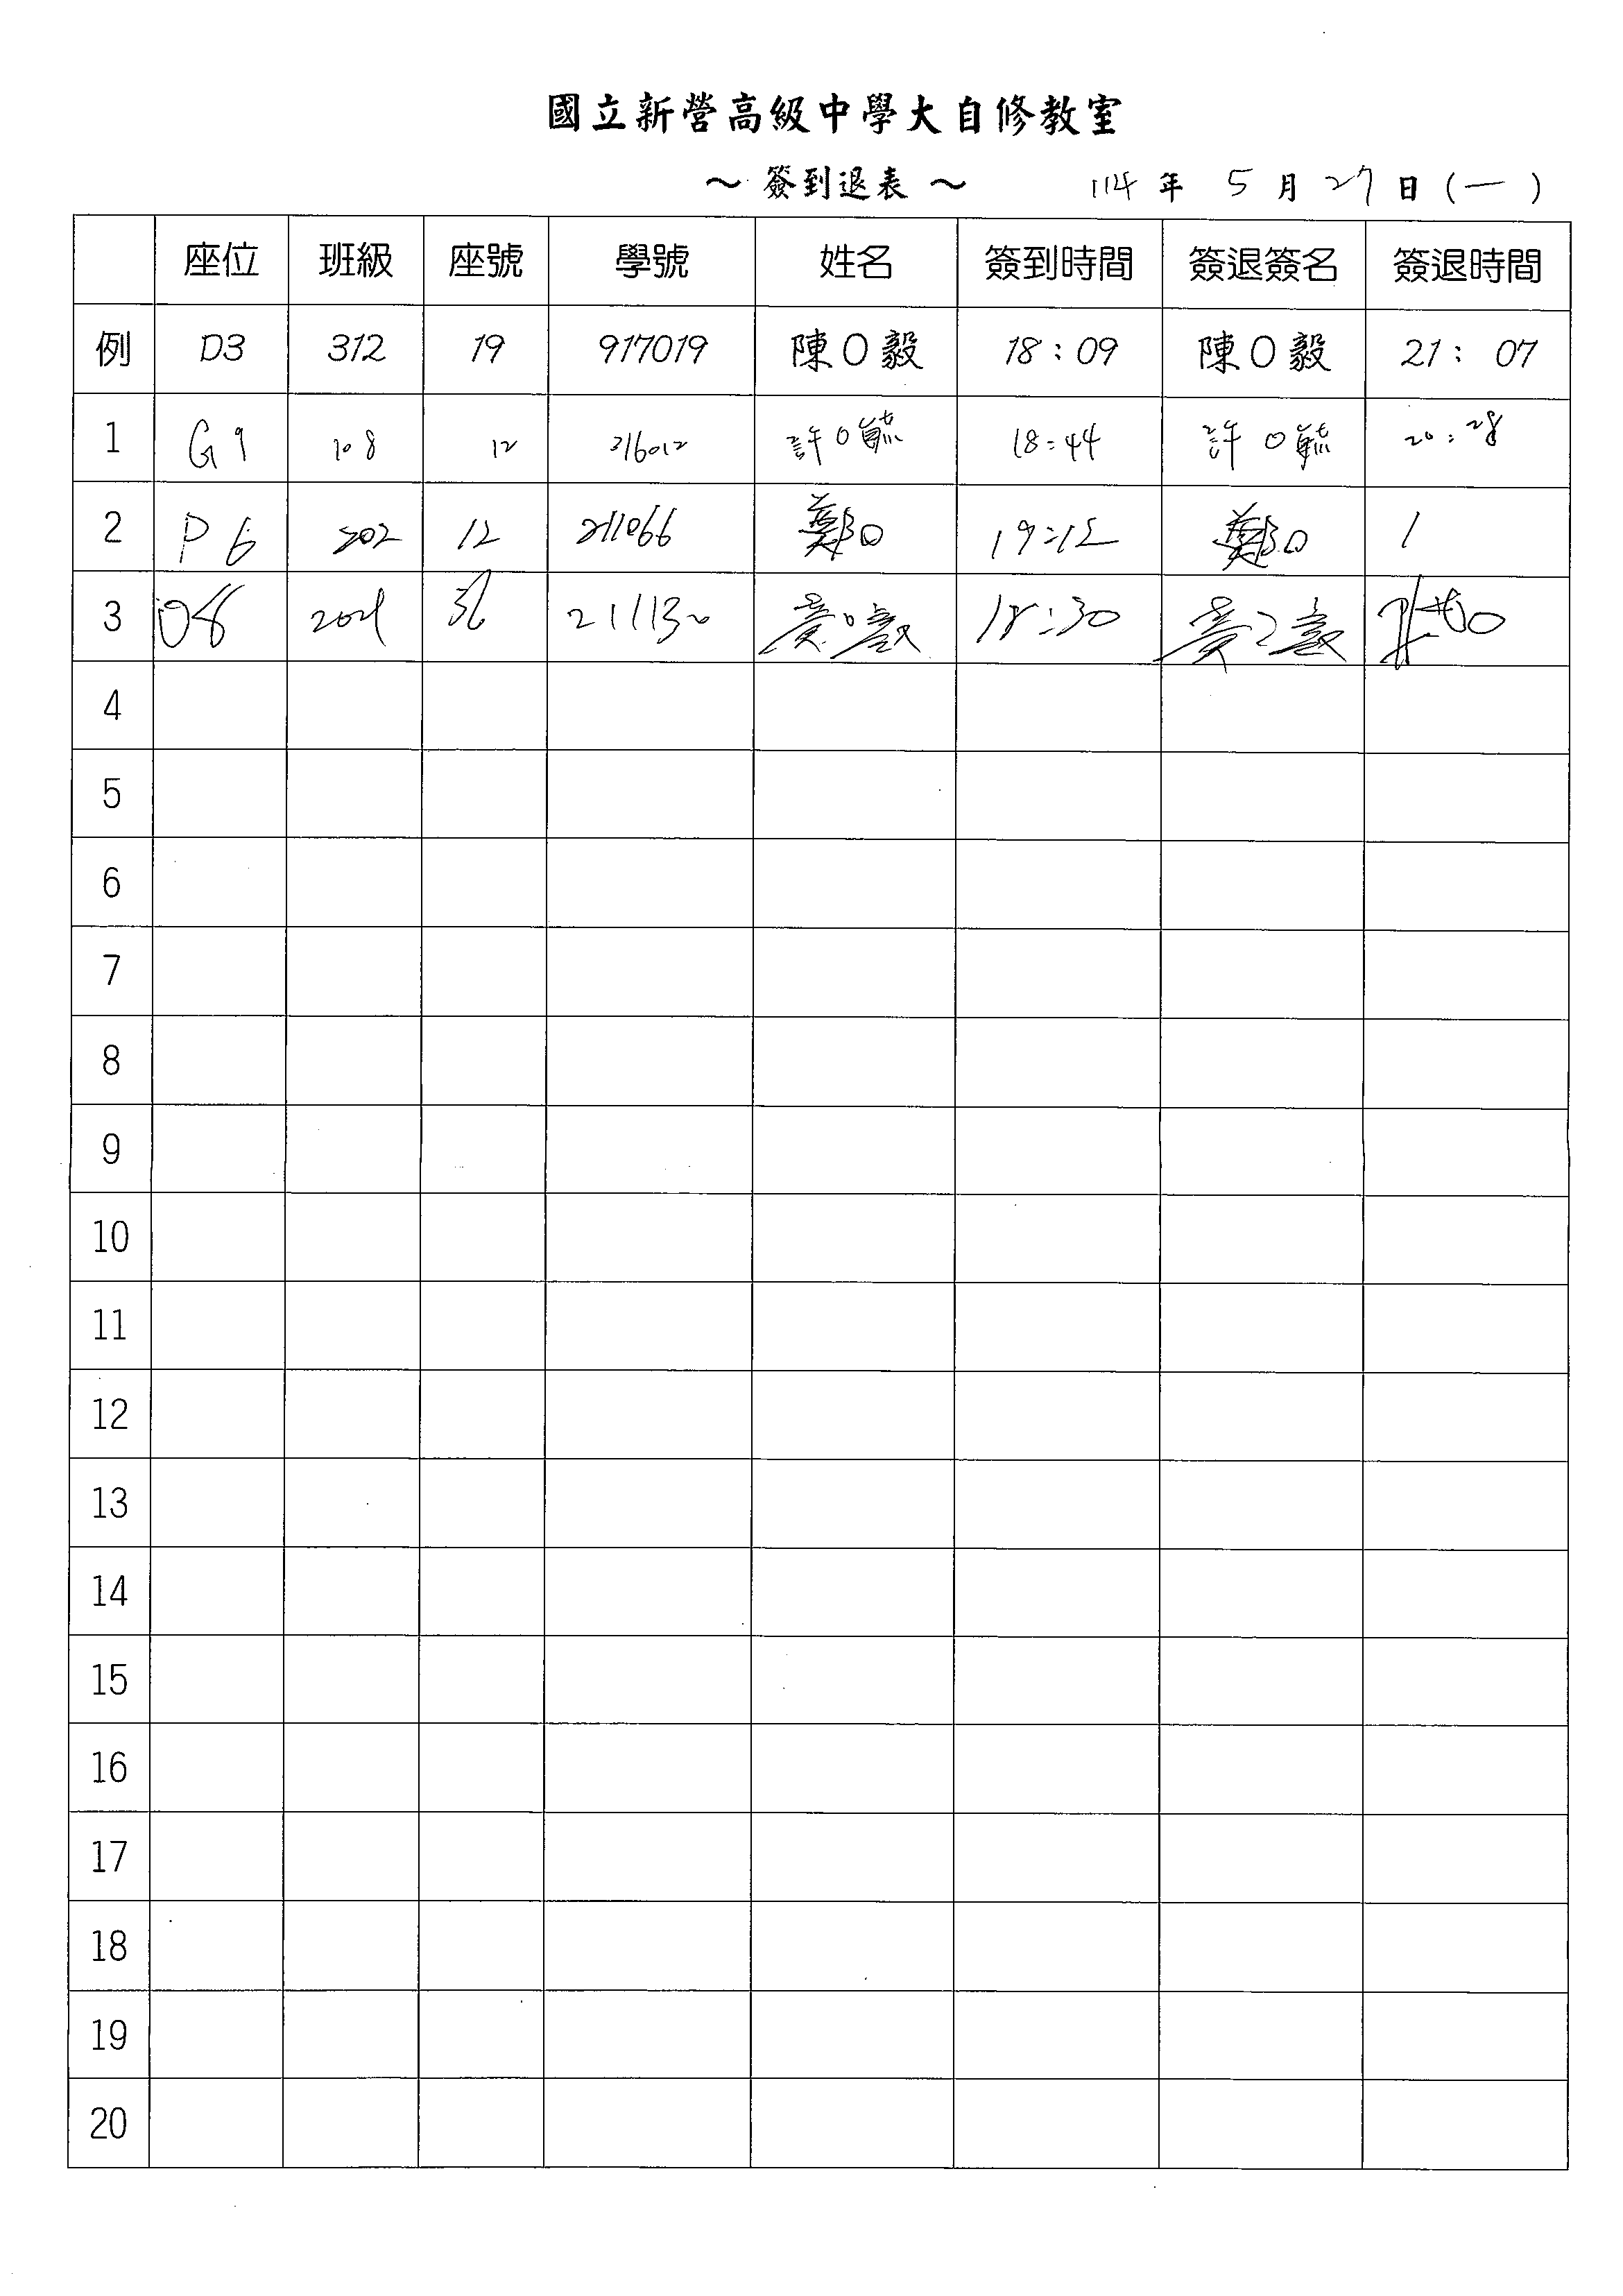 國立新營高級中學大自修教室
～簽到退表～ 114 年 5 月 27 日(一)
座位 班級 座號 學號 姓名 簽到時間 簽退簽名 簽退時間
例 D3 312 19 917019 陳O毅 18:09 陳O毅 21:07
1 G9 108 12 316012 許O毓 18:44 許O毓 20:28
2 P6 202 12 211066 鄭O 19:12 鄭O
3 208 36 211130 黃 18:30 黃
4
5
6
7
8
9
10
11
12
13
14
15
16
17
18
19
20